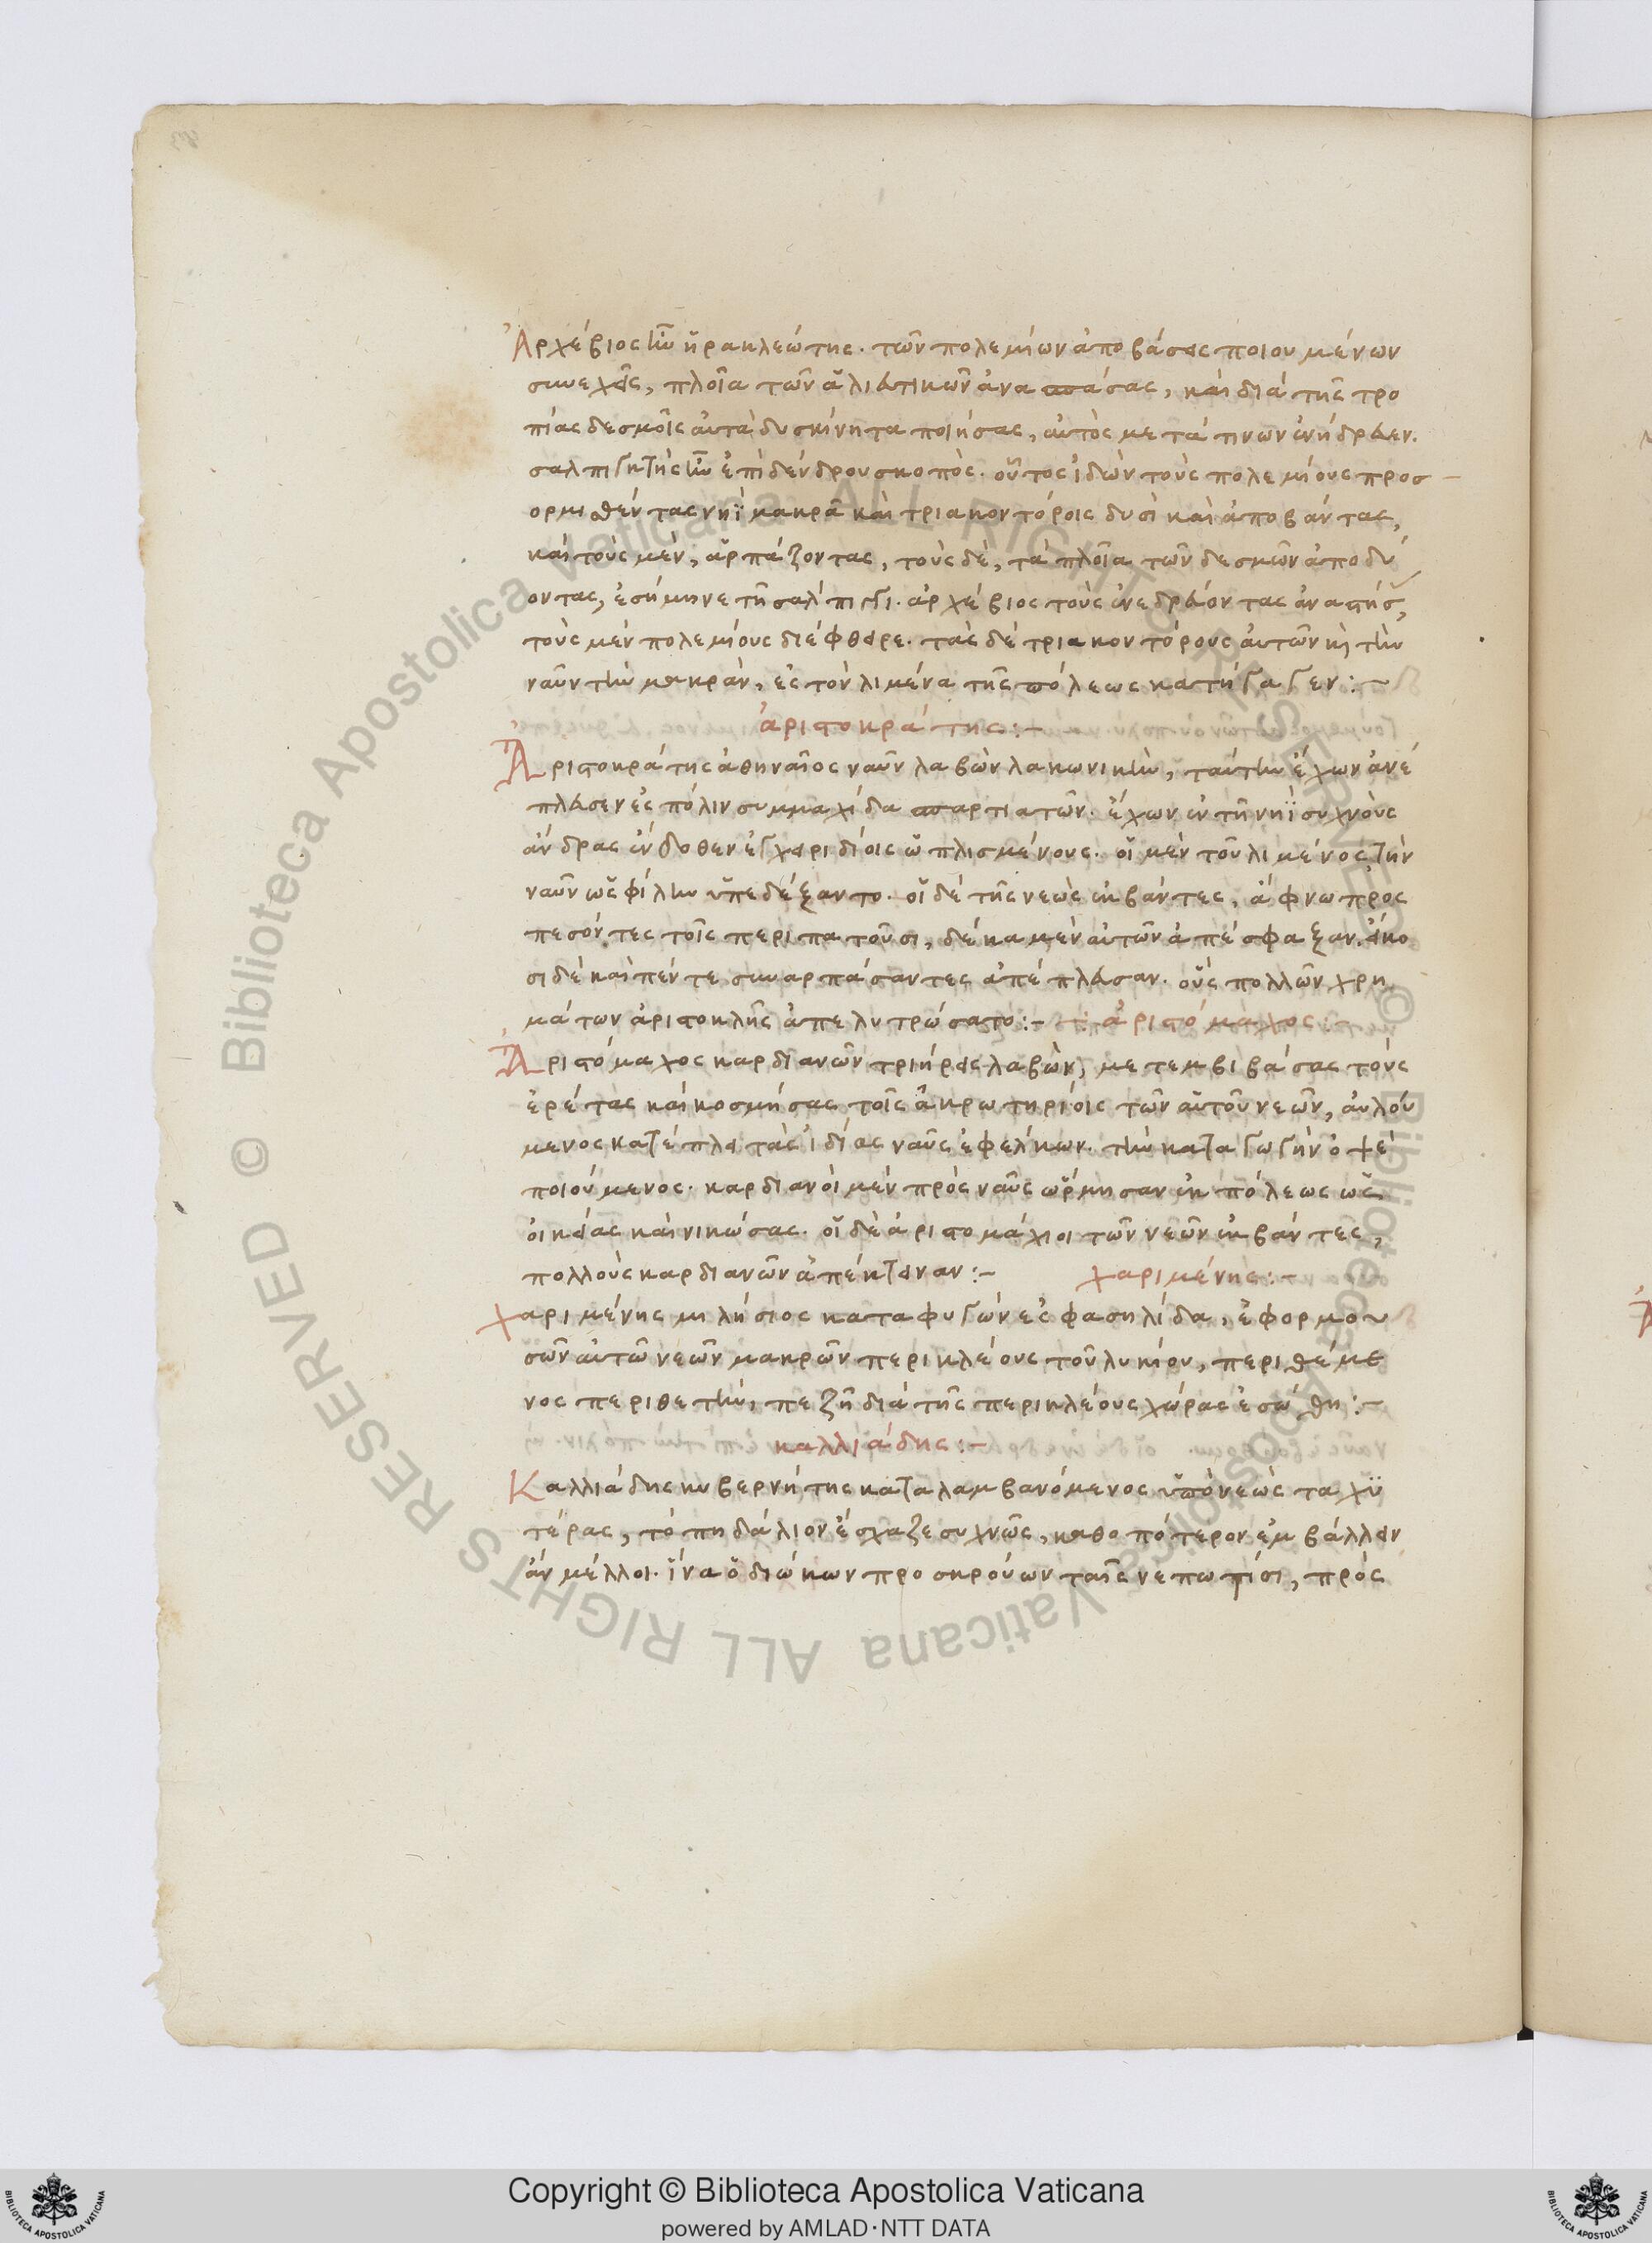 Ἀρχέβιος ἦν ἡρακλεώτης. τῶν πολεμίων ἀποβάσεις ποιουμένων
συνεχεῖς, πλοῖα τῶν ἁλιευτικῶν ἀνασπάσας, καὶ διὰ τῆς τρο
πίας δεσμοῖς αὐτὰ δυσκίνητα ποιήσας, αὐτὸς μετά τινων ἐνήδρευεν.
σαλπιγκτὴς ἦν ἐπὶ δένδρου σκοπός. οὗτος ἰδὼν τοὺς πολεμίους προσ
ορμισθέντας νηῒ μακρᾶ καὶ τριακοντόροις δυσὶ καὶ ἀποβάντας,
καὶ τοὺς μὲν, ἁρπάζοντας, τοὺς δὲ, τὰ πλοῖα τῶν δεσμῶν ἀπολύ
οντας, ἐσήμηνε τῆ σάλπιγγι. ἀρχέβιος τοὺς ἐνεδρεύοντας ἀναστήσας,
τοὺς μὲν πολεμίους διέφθειρε. τὰς δὲ τριακοντόρους αὐτῶν καὶ τὴν
ναῦν τὴν μακρὰν, ἐς τὸν λιμένα τῆς πόλεως κατήγαγεν:~
ἀριστοκράτης:-
Ἀριστοκράτης ἀθηναῖος ναῦν λαβὼν λακωνικὴν, ταύτην ἔχων ἀνέ
πλευσεν ἐς πόλιν συμμαχίδα σπαρτιατῶν. ἔχων ἐν τῆ νηῒ συχνοὺς
ἄνδρας ἔνδοθεν ἐγχειριδίοις ὡπλισμένους. οἱ μὲν τοῦ λιμένος τὴν
ναῦν ὡς φίλην ὑπεδέξαντο. οἱ δὲ τῆς νεὼς ἐκβάντες, ἄφνω προς
πεσόντες τοῖς περιπατοῦσι, δέκα μὲν αὐτῶν ἀπέσφαξαν. εἴκο
σι δὲ καὶ πέντε συναρπάσαντες ἀπέπλευσαν. οὓς πολλῶν χρη
μάτων ἀριστοκλῆς ἀπελυτρώσατο:- -: ἀριστόμαχος:-
Ἀριστόμαχος καρδιανῶν τριήρεις λαβὼν, μετεμβιβάσας τοὺς
ἐρέτας καὶ κοσμήσας τοῖς ἀκρωτηρίοις τῶν αὑτοῦ νεῶν, αὐλού
μενος κατέπλει τὰς ἰδίας ναῦς ἐφέλκων. τὴν καταγωγὴν ὀψὲ
ποιούμενος. καρδιανοὶ μὲν πρὸς ναῦς ὥρμησαν ἐκ πόλεως ὡς
οἰκείας καὶ νικώσας. οἱ δὲ ἀριστομάχιοι τῶν νεῶν ἐκβάντες,
πολλοὺς καρδιανῶν ἀπέκτειναν:- χαριμένης:-
Χαριμένης μιλήσιος καταφυγὼν ἐς φασηλίδα, ἐφορμου
σῶν αὐτῶ νεῶν μακρῶν περικλέους τοῦ λυκίου, περιθέμε
νος περιθετὴν, πεζῆ διὰ τῆς περικλέους χώρας ἐσώθη:-
καλλιάδης:-
Καλλιάδης κυβερνήτης καταλαμβανόμενος ὑπὸ νεὼς ταχυ
τέρας, τὸ πηδάλιον ἔσχαζε συχνῶς, καθοπότερον ἐμβάλλειν
ἂν μέλλοι. ἵνα ὁ διώκων προσκρούων ταῖς νεπωτίσι, πρὸς
Copyright © Biblioteca Apostolica Vaticana
powered by AMLAD·NTT DATA